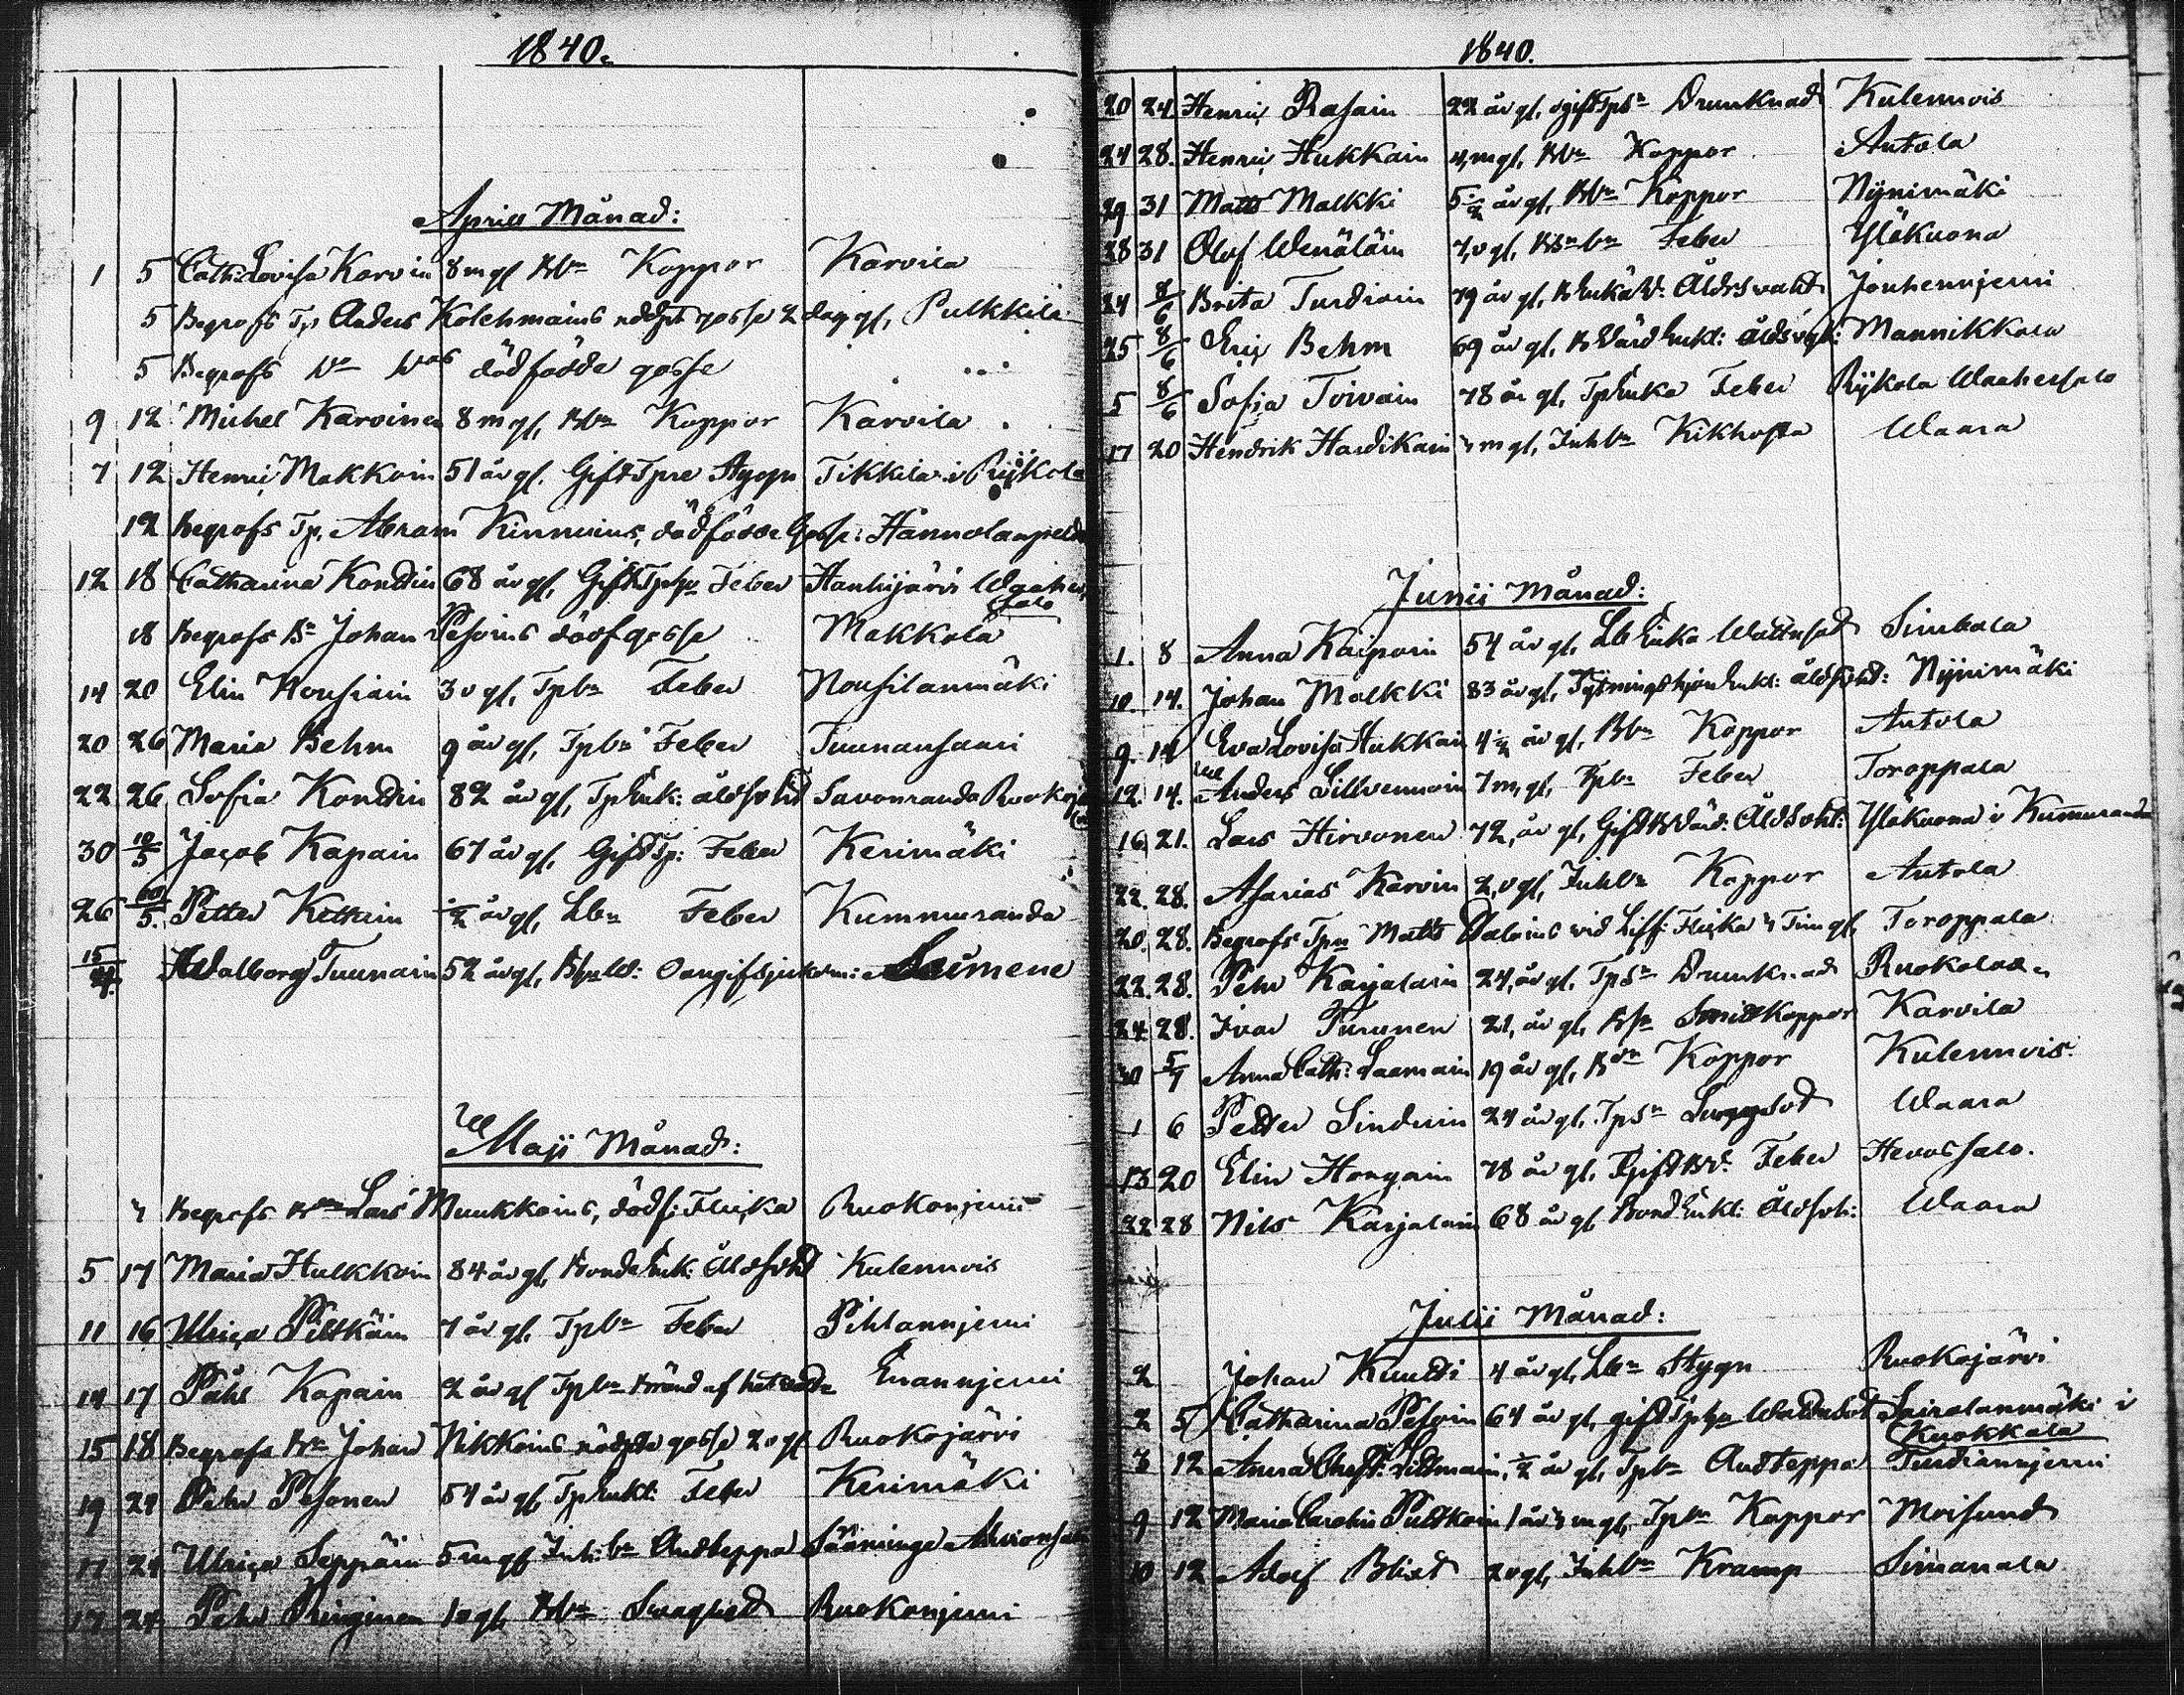 1840.
Aprill Månad:
1 5 Cath: Lovisa Karvin 8 m gl Bbn Koppor Karvila
5 Begrofs Tp Anders Kolchmains nödpt gosse 2 dag gl, Pulkkila
5 Begrofs dödfödde gosse
9 12 Michel Karvinen 8 m gl, Bbn Koppor Karvila
7 12 Henric Makkoin 51 år gl. Gift Tpre Stygn Tikkila i Ryjkola
12 Begrofs Tp. Abram Kinnuins, dödfödde Gosse: Hannolanpeldo
12 18 Catharina Kondin 68 år gl, Gift Tphu Feber Hanhijärvi Waahersalo
18 Begrofs Bn Johan Pesoins dödf gosse Makkola
14 20 Elin Nousiain 3 v gl, Tpbn Feber Nousilanmäki
20 26 Maria Behm 9 år gl, Tpbn Feber Tuunansaari
22 26 Sofia Kondin 82 år gl, Tp Enk: åldsvhd Savonranda Ruokoj
30 10/5 Jacob Kapain 67 år gl, Gift Tp: Feber Kerimäki
26 10/5. Petter Kettuin 1/2 år gl, Lbn Feber Kummuranda
15/4. Walborg Tuunain 52 år gl, Oangifsjukdom:
Maji Månad:
7 Begrofs Bn Lars Muukkoins, dödf: Flicka Ruokonjemi
5 17 Maria Hulkkoin 84 år gl, Bonde Enk: Åldsvhd Kulennois
11 16 Ulrica Piltkäin 7 år gl, Tpbn Feber Pihlannjemi
14 17 Påhl Kapain 2 år gl Tpbn Bränd af het vatn Enannjemi
15 18 Begrofs Bn Johan Nikkoins nödpte gosse 2 v gl Ruokojärvi
19 24 Pehr Pesonen 54 år gl, Tp Enkl: Feber Kerimäki
17 24 Ulrica Seppäin 5 m gl Inh: bn Andteppa Sääminge
17 24 Pehr 1 v gl, Bbn Ruokonjemi
1840.
20 24. Henric Rasain 22 år gl, ogift Tpsn Drunknad Kulennois
24 28. Henric Hukkain 4, m gl, Bbn Koppor Antola
29 31 Matts Malkki 5 1/2 år gl, Bbn Koppor Nyjnimäki
28 31 Olof Wenäläin 7, v gl, Feber Yläkuona
24 8/6 Brita Turdiain 79 år gl, B Enka W: Åldrsvahd Jouhennjemi
25 8/6 Eric Behm 69 år gl, B Enkl: åldsvgh: Mannikkola
5 8/6 Sofia Toivain 78 år gl, Tp Enka Feber Ryjkola Waahersalo
17 20 Hendrik Hardikain 7 m gl, Inhbn Kikhosta Waara
Junii Månad:
1. 8 Anna Kaiponin 54 år gl, Lb Enka Wattnsot Simbala
10. 14. Johan Malkki 83 år gl, Enkl: åldsvhd: Nyjnimäki
9. 14 Eva Lovisa Hukkain 4 1/2 år gl, Bbn Koppor Antola
12. 14. Anders Sillvennoin 7 m, gl, Tpbn Feber Toroppala
16. 21. Lars Hirvonen 72, år gl, Gift B Värd: Åldsvht: Yläkuona i Kummuranda
22. 28. Asarias Karvin 2, v gl, Inhbn Koppor Antola
20. 28. Begrofs Tpn Matts vid Liff: Flicka 7 Tim gl, Toroppala
22. 28. Pehr Karjalain 24, år gl, Tpsn Drunknad
24 28. Ivar Turunen 21, år gl, Bsn Smittkoppor Karvila
30 5/7 Anna Cath: Laamain 19 år gl, Bdn Koppor Kulennois
1 6 Petter Sinduin 24 år gl, Tpsn Lungsot Waara
13 20 Elin Hongain 78 år gl, Gift Feber Hevossalo.
22 28 Nils Karjalain 68 år gl Bond Enkl: Åldsvh: Waara
Julii Månad:
2 Johan Kuutti 4 år gl, Lbn Stygn Ruokojärvi
2 5 Catharina Pesoin 64 år gl, gift Tphu Wattnsot Sairalanmäki i Kuokkala
3 12 Anna Christ: 1/2 år gl, Tpbn Andteppa Turdiannjemi
9 12 Maria Carolin Pultkain 1 år 7 m gl, Tpbn Koppor Moisund
10 12 Adolf Blixt 2 v gl, Inhbn Kramp Simanala